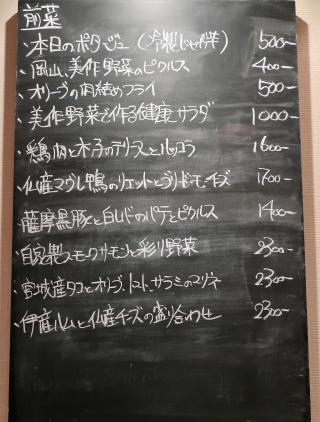 前菜
・本日のポタージュ(冷製じゃが芋) 500-
・岡山、美作野菜のピクルス 400-
・オリーブの肉詰めフライ 500-
・美作野菜で作る健康サラダ 1000-
・鶏肉と木の子のテリーヌとルッコラ 1600-
・仏産マグレ鴨のリエットとブリ・ド・モーチーズ 1700-
・薩摩黒豚と白レバのパテとピクルス 1400-
・自家製スモークサーモンと彩り野菜 2300-
・宮城産タコとオリーブ、トマト、サラミのマリネ 2300-
・伊産ハムと仏産チーズの盛り合わせ 2300-